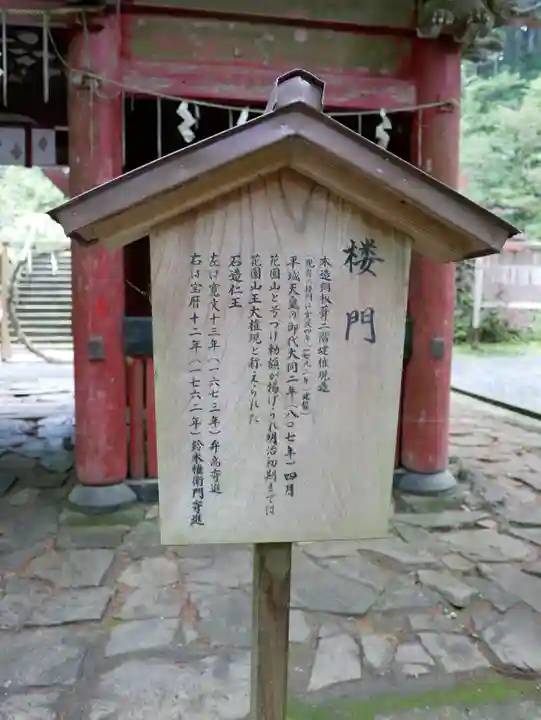 楼門
木造銅板葺二階建権現造
(現在の楼門は寛政四年(一七九一年)建替)
平城天皇の御代大同二年(八〇七年)四月
花園山と号つけ勅額が掲げられ明治初期までは
花園山王大権現と称えられた
石造仁王
左は寛文十三年(一六七三年)弁高寄進
右は宝暦十二年(一七六二年)鈴木権衛門寄進